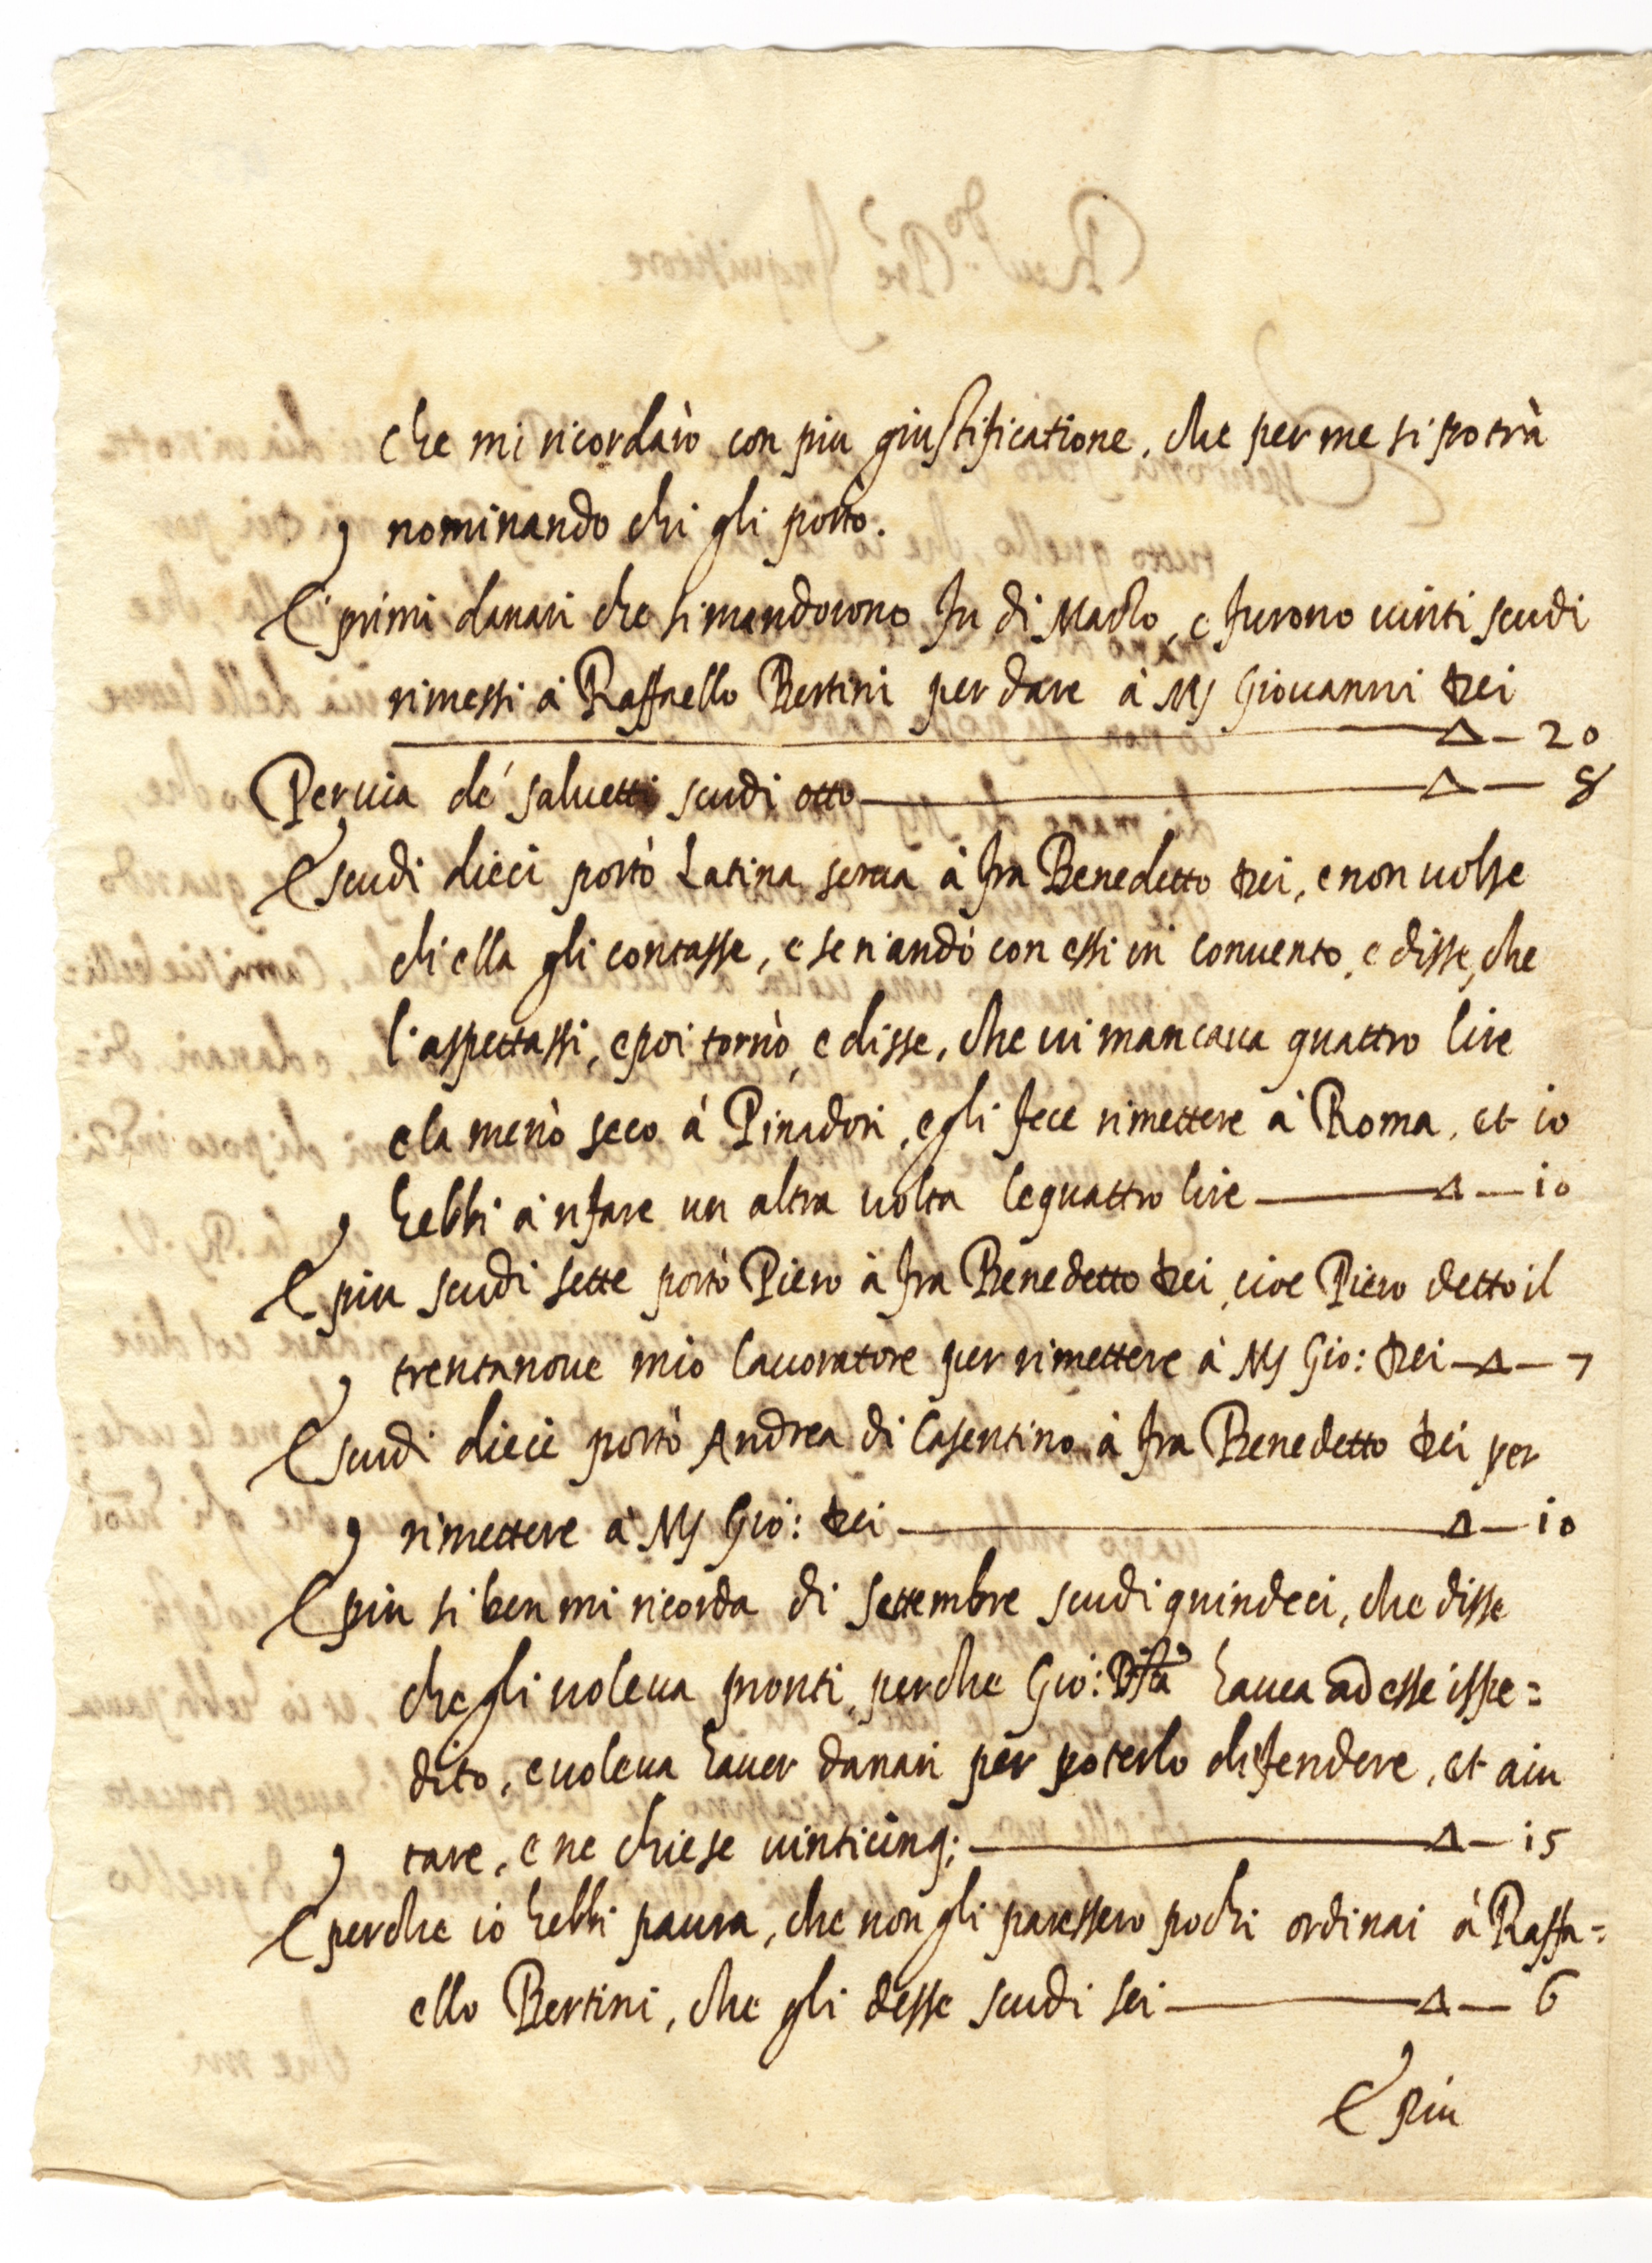 che mi ricordarò con piu giustificatione, che per me si potrà
nominando chi gli portò.
E primi danari che si mandorono fu di Marzo, e furono uinti scudi
rimessi à Raffaello Bertini per dare à Ms Giouanni Dei
Δ — 20
Per uia de' Saluetti scudi otto — Δ — 8
E scudi dieci portò Latina serua à fra Benedetto Dei, e non uolse
ch'ella gli contasse, e se n'andò con essi in conuento, e disse, che
l'aspettassi, e poi tornò, e disse, che ui mancaua quattro lire
e la menò seco à Pinadori, e gli fece rimettere à Roma, et io
hebbi à rifare un altra uolta le quattro lire — Δ — 10
E piu scudi sette portò Piero à fra Benedetto Dei, cioe Piero detto il
trentanoue mio lauoratore per rimettere à Ms Gio: Dei — Δ — 7
E scudi dieci portò Andrea di Casentino à fra Benedetto Dei per
rimettere à Ms Gio: Dei — Δ — 10
E piu si ben mi ricorda di Settembre scudi quindeci, che disse
che gli uoleua pronti, perche Gio: Bta hauea ad esse ispe=
dito, e uoleua hauer danari per poterlo difendere, et aiu
tare, e ne chiese uinticinq; — Δ — 15
E perche io hebbi paura, che non gli paressero pochi ordinai à Raffa=
ello Bertini, che gli desse scudi sei — Δ — 6
E piu